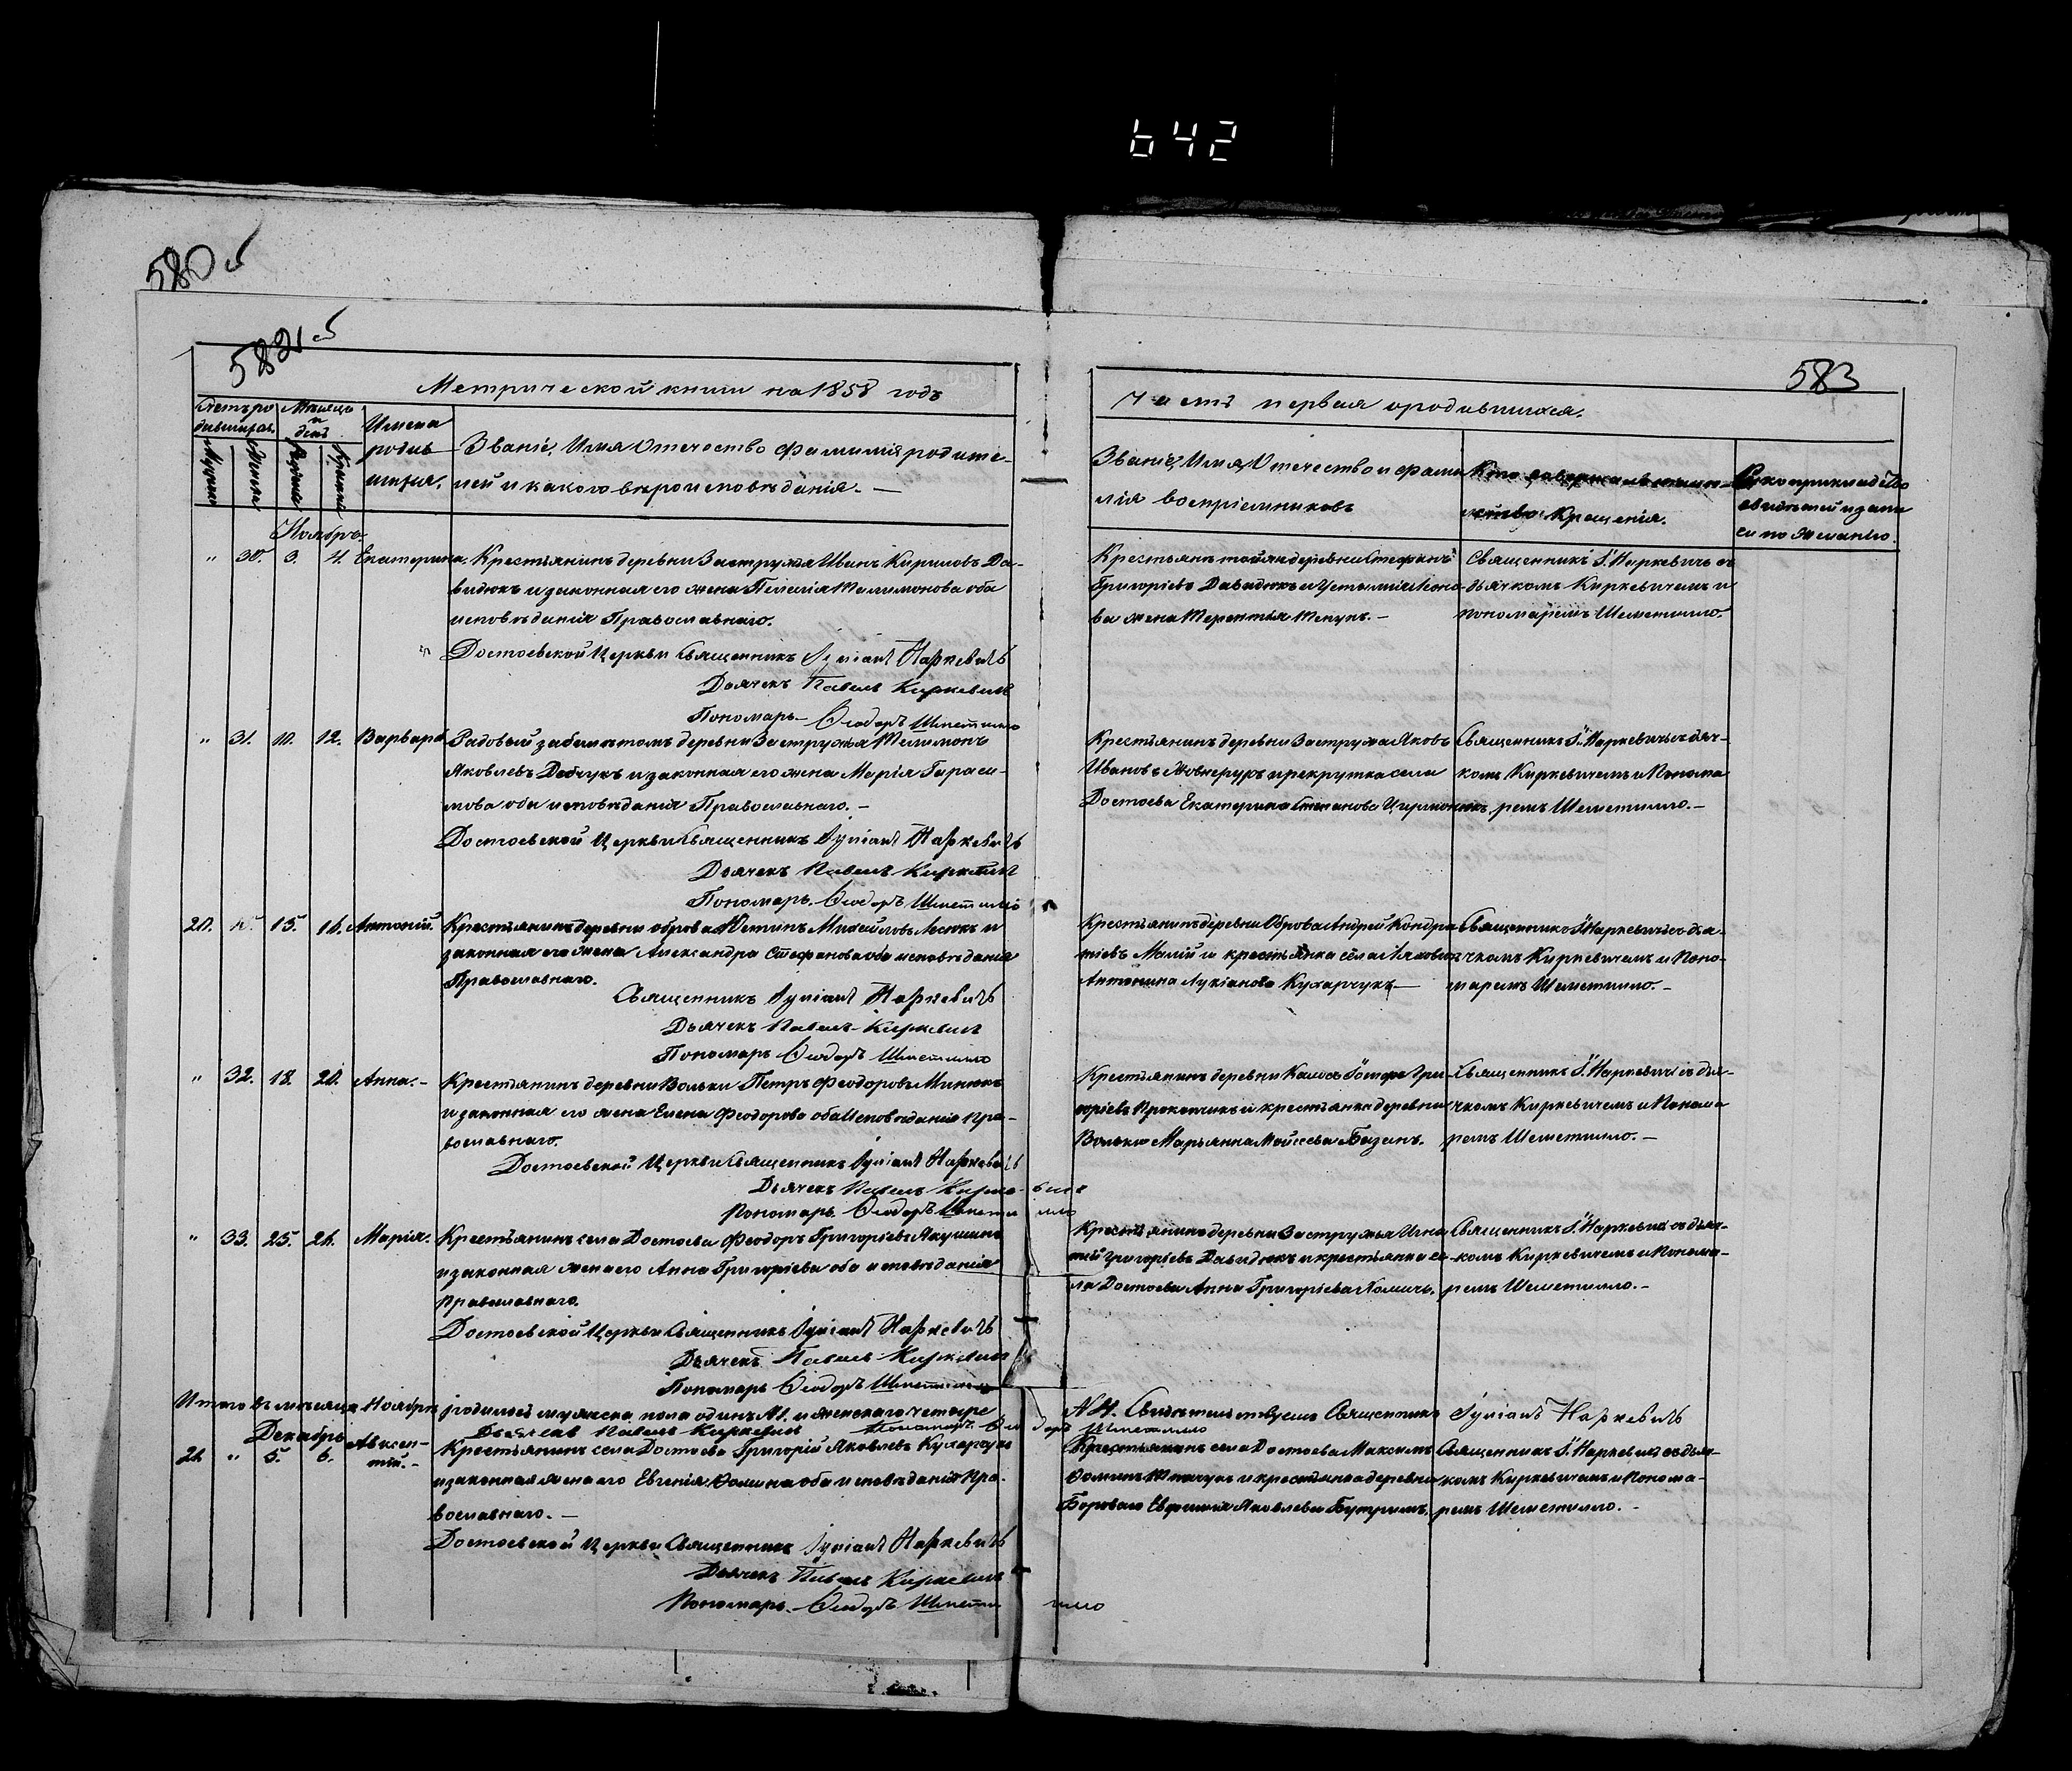 642
580 об
582 об
583
Метрической книги на 1858 годъ
Часть первая о родившихся.
Счетъ родившихся.
Мужеска
Женска
Мѣсяцъ и день
Рожденія
Крещенія
Имена родившихся.
Званіе, Имя Отчество Фамилія родите-
лей и какого вѣроисповѣданія. —
Званіе, Имя, Отчество и фами
лія воспріемниковъ
Кто совершалъ таин-
ство Крещенія.
Рукоприкладство
свидѣтелей о запи
си по желанію.
Ноябрь
" 30. 3. 4. Екатерина. Крестьянинъ деревни Застружья Иванъ Кириловъ Да-
видюкъ и законная его жена Пелагія Тилимонова оба
исповѣданія Православнаго.
Достоевской Церкви Священникъ Іуліанъ Наркевичъ
Дьячекъ Павелъ Киркевичъ
Пономарь Ѳеодоръ Шеметилло
Крестьянъ той же деревни Стефанъ
Григорьевъ Давидюкъ и Устинія
ва жена Терентія
Священникъ І. Наркевичъ съ
дьячкомъ Киркевичемъ и
пономаремъ Шеметилло.
" 31. 10. 12. Варвара Рядовый за билетомъ деревни Застружья Тилимонъ
Яковлевъ Добчукъ и законная его жена Марія Гараси-
мова оба исповѣданія Православнаго. —
Достоевской Церкви Священникъ Іуліанъ Наркевичъ
Дьячекъ Павелъ Киркевичъ
Пономарь. Ѳеодоръ Шеметилло
Крестьянинъ деревни Застружья Яковъ
Ивановъ Жовнерукъ и рекрутка села
Достоева Екатерина Степанова
Священникъ І. Наркевичъ съ дьяч-
комъ Киркевичемъ и Понома
ремъ Шеметилло. —
20. " 15. 16. Антоній. Крестьянинъ деревни Оброва Устинъ Михайловъ Лесюкъ и
законная его жена Александра Стефанова оба исповѣданія
Православнаго.
Священникъ Іуліанъ Наркевичъ
Дьячекъ Павелъ Киркевичъ
Пономарь Ѳеодоръ Шеметилло
Крестьянинъ деревни Оброва Андрей Кондра
тіевъ Малій и крестьянка села
Антонина Лукіанова Кухарчукъ —
Священникъ І. Наркевичъ съ дья-
чкомъ Киркевичемъ и Поно-
маремъ Шеметилло. —
" 32. 18. 20. Анна. — Крестьянинъ деревни Вольки Петръ Феодоровъ Минюкъ
и законная его жена Елена Феодорова оба Исповѣданія Пра-
вославнаго.
Достоевской Церкви Священникъ Іуліанъ Наркевичъ
Дьячекъ Павелъ Киркевичъ
Пономарь. Ѳеодоръ Шеметилло
Крестьянинъ деревни Іосифъ Гри-
горіевъ Прокопчикъ и крестьянка деревни
Вольки Марьянна Мойсеева Базанъ.
Священникъ І. Наркевичъ съ дья-
чкомъ Киркевичемъ и Понома
ремъ Шеметилло. —
" 33. 25. 26. Марія. Крестьянинъ села Достоева Феодоръ Григорьевъ Якушикъ
и законная жена его Анна Григорьева оба исповѣданія
Православнаго.
Достоевской Церкви Священникъ Іуліанъ Наркевичъ
Дьячекъ Павелъ Киркевичъ
Пономарь Ѳеодоръ Шеметилло
Крестьянинъ деревни Застружья Игна
тій Григорьевъ Давидюкъ и крестьянка се-
ла Достоева Анна Григорьева Хомичъ.
Священникъ І. Наркевичъ съ дьяч-
комъ Киркевичемъ и Понома-
ремъ Шеметилло. —
Итого въ мѣсяцѣ Ноябрѣ родилось мужеска пола одинъ и женскаго четыре
Свидѣтельствуемъ Священникъ Іуліанъ Наркевичъ
Дьячекъ Павелъ Киркевичъ Пономарь Ѳеодоръ Шеметилло
Декабрь
21. " 5. 6. Авксен-
тій. — Крестьянинъ села Достоева Григорій Яковлевъ Кухарчукъ
и законная жена его Евгенія Фомина оба исповѣданія Пра-
вославнаго. —
Достоевской Церкви Священникъ Іуліанъ Наркевичъ
Дьячекъ Павелъ Киркевичъ
Пономарь. Ѳеодоръ Шеметилло
Крестьянинъ села Достоева Максимъ
Фоминъ и крестьянка деревни
Бороваго Евфимія Яковлева Бутримъ.
Священникъ І. Наркевичъ съ дьяч-
комъ Киркевичемъ и Понома-
ремъ Шеметилло. —